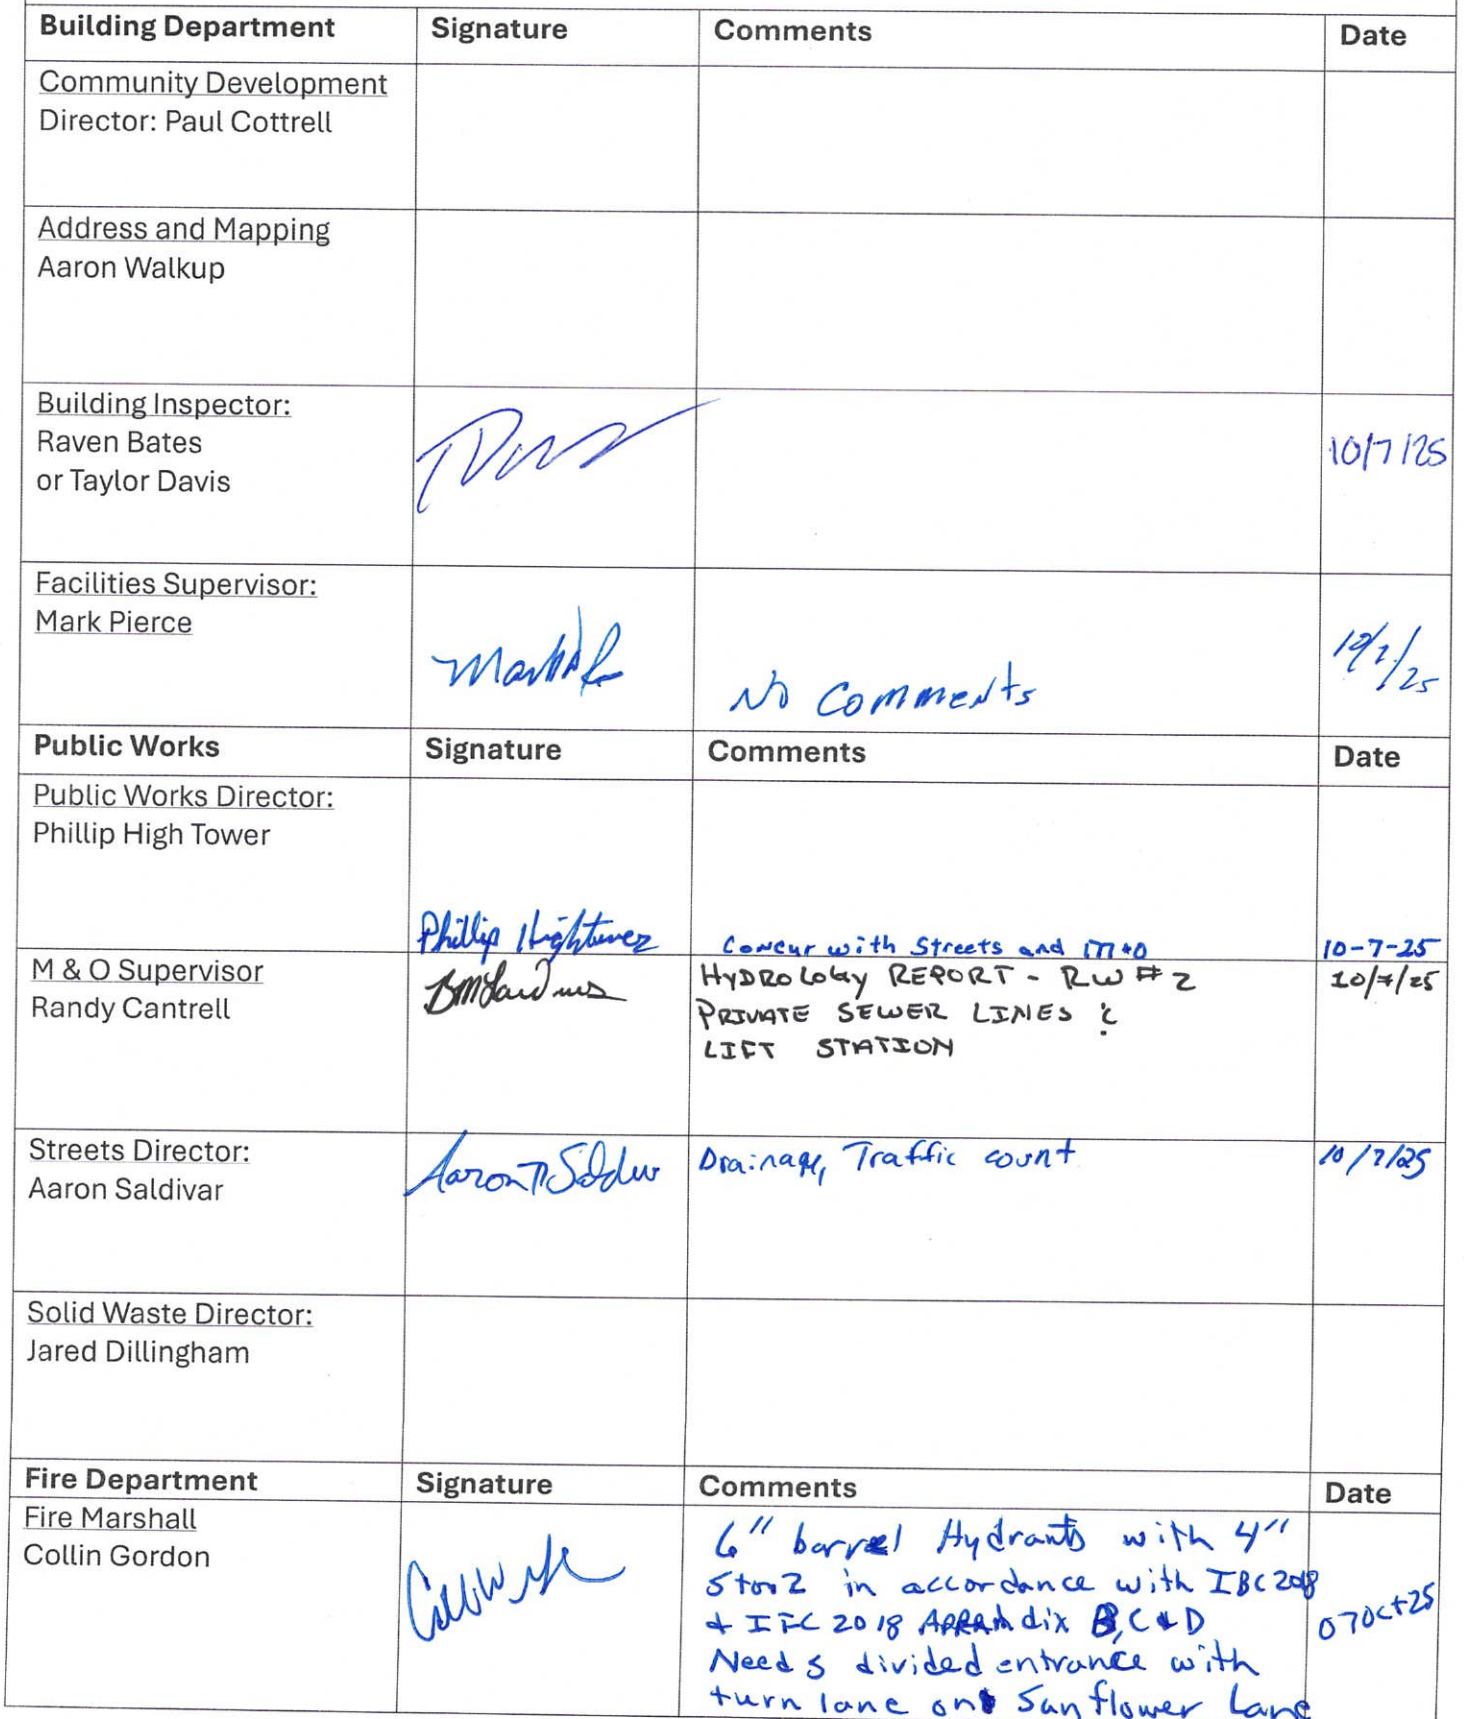 Building Department Signature Comments Date
Community Development
Director: Paul Cottrell
Address and Mapping
Aaron Walkup
Building Inspector:
Raven Bates
or Taylor Davis
10/7/25
Facilities Supervisor:
Mark Pierce
No Comments
10/7/25
Public Works Signature Comments Date
Public Works Director:
Phillip High Tower
Phillip Hightower Concur with Streets and M+O 10-7-25
M & O Supervisor
Randy Cantrell
HYDROLOGY REPORT - RW # 2 10/7/25
PRIVATE SEWER LINES &
LIFT STATION
Streets Director:
Aaron Saldivar
Drainage, Traffic count 10/7/25
Solid Waste Director:
Jared Dillingham
Fire Department Signature Comments Date
Fire Marshall
Collin Gordon
6" barrel Hydrants with 4"
in accordance with IBC 2018
+ IFC 2018 Appendix B,C+D 07Oct25
Needs divided entrance with
turn lane on Sunflower Lane